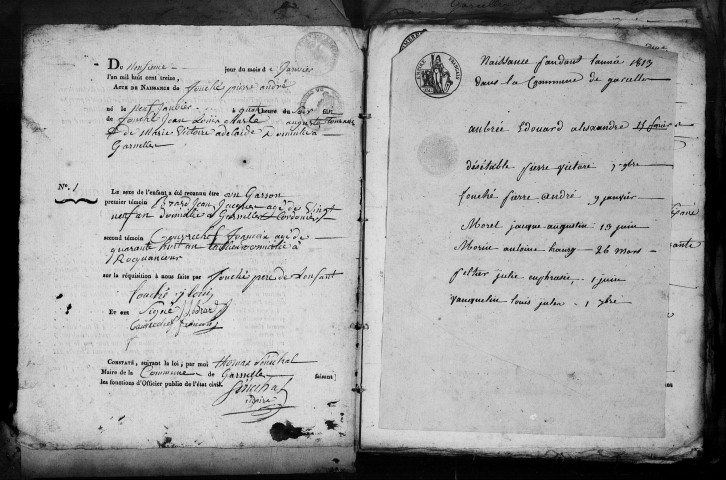 Du onsieme jour du mois de Janvier
l'an mil huit cent treize,
ACTE DE NAISSANCE de fouché pierre andré
né le neuf Janvier à quatre heure du Soir fils
de fouché Jean Louis Marte auguste
& de Marie Victoire adelaide Domicilié a
Garnelle
N.° 1
Le sexe de l'enfant a été reconnu être un Garson
premier témoin Jean Jacques agé de Vingt
neuf an domicilié a Garnelle Cordonier
second témoin Caurechef francois agé de
quarante huit an domicilié à
Rocquancour
sur la réquisition à nous faite par fouché pere de Lenfant
fouché j louis
Et ont Signé
Caurechef francois
CONSTATÉ, suivant la loi, par moi thomas Senechal
Maire de la Commune de Garselle faisant
les fonctions d'Officier public de l'état civil.
Senechal
Maire
Naissance pendant l'année 1813
dans la Commune de garcelle
aubrée Edouard alexandre 15
désétable pierre victore 7bre
fouché pierre andré 9 janvier
Morel jacque augustin 19 juin
Morin antoine haury 26 mars
peltier julie euphrasie 1 juin
Vauquelin louis jules 1 9bre